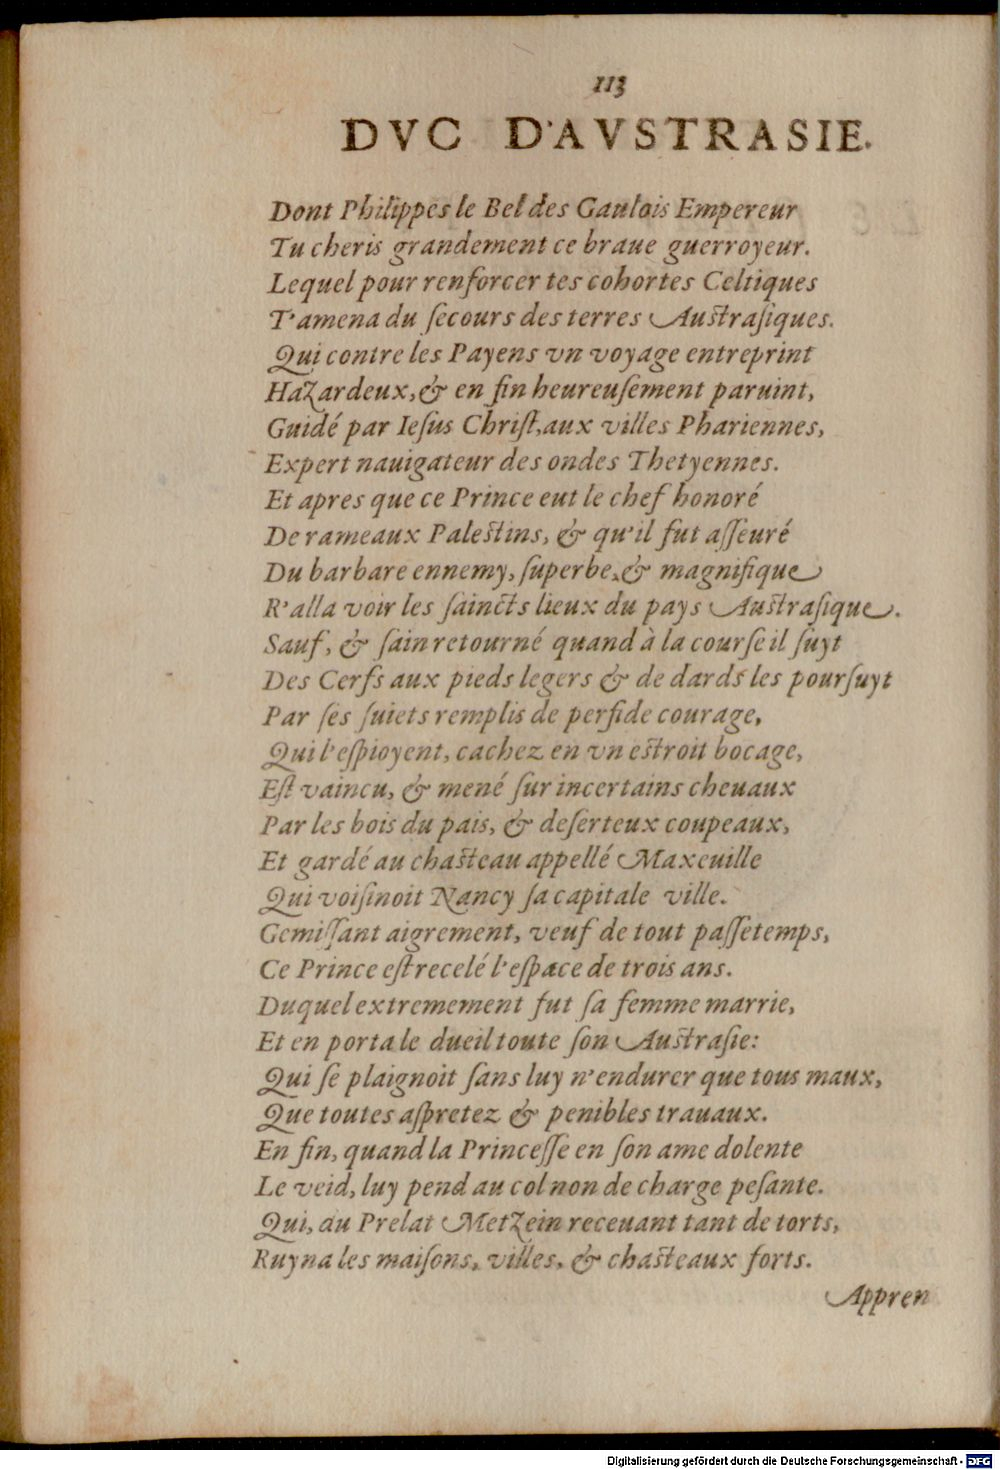 113
DVC D'AVSTRASIE.
Dont Philippes le Bel des Gaulois Empereur
Tu cheris grandement ce braue guerroyeur.
Lequel pour renforcer tes cohortes Celtiques
T'amena du ſecours des terres Auſtraſiques.
Qui contre les Payens vn voyage entreprint
Hazardeux, & en fin heureuſement paruint,
Guidé par Ieſus Chriſt, aux villes Phariennes,
Expert nauigateur des ondes Thetyennes.
Et apres que ce Prince eut le chef honoré
De rameaux Paleſtins, & qu'il fut aſſeuré
Du barbare ennemy, ſuperbe, & magnifique
R'alla voir les ſaincts lieux du pays Auſtraſique.
Sauf, & ſain retourné quand à la courſe il ſuyt
Des Cerfs aux pieds legers & de dards les pourſuyt
Par ſes ſuiets remplis de perfide courage,
Qui l'eſpioyent, cachez en vn eſtroit bocage,
Eſt vaincu, & mené ſur incertains cheuaux
Par les bois du pais, & deſerteux coupeaux,
Et gardé au chaſteau appellé Maxeuille
Qui voiſinoit Nancy ſa capitale ville.
Gemiſſant aigrement, veuf de tout paſſetemps,
Ce Prince eſt recelé l'eſpace de trois ans.
Duquel extremement fut ſa femme marrie,
Et en porta le dueil toute ſon Auſtraſie:
Qui ſe plaignoit ſans luy n'endurer que tous maux,
Que toutes aſpretez & penibles trauaux.
En fin, quand la Princeſſe en ſon ame dolente
Le veid, luy pend au col non de charge peſante.
Qui, au Prelat Metzein receuant tant de torts,
Ruyna les maiſons, villes, & chaſteaux forts.
Appren
Digitalisierung gefördert durch die Deutsche Forschungsgemeinschaft - DFG